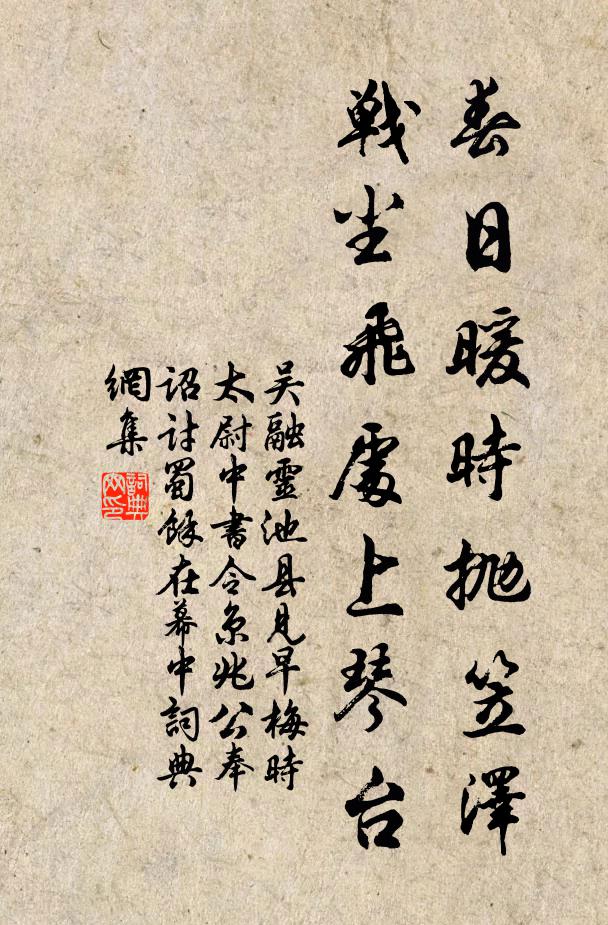 春日暖時抛笠澤
戰尘飛處上琴台
吴融靈池县見早梅時
太尉中書令京兆公奉
詔討蜀餘在幕中詞典
網集
詞典網印